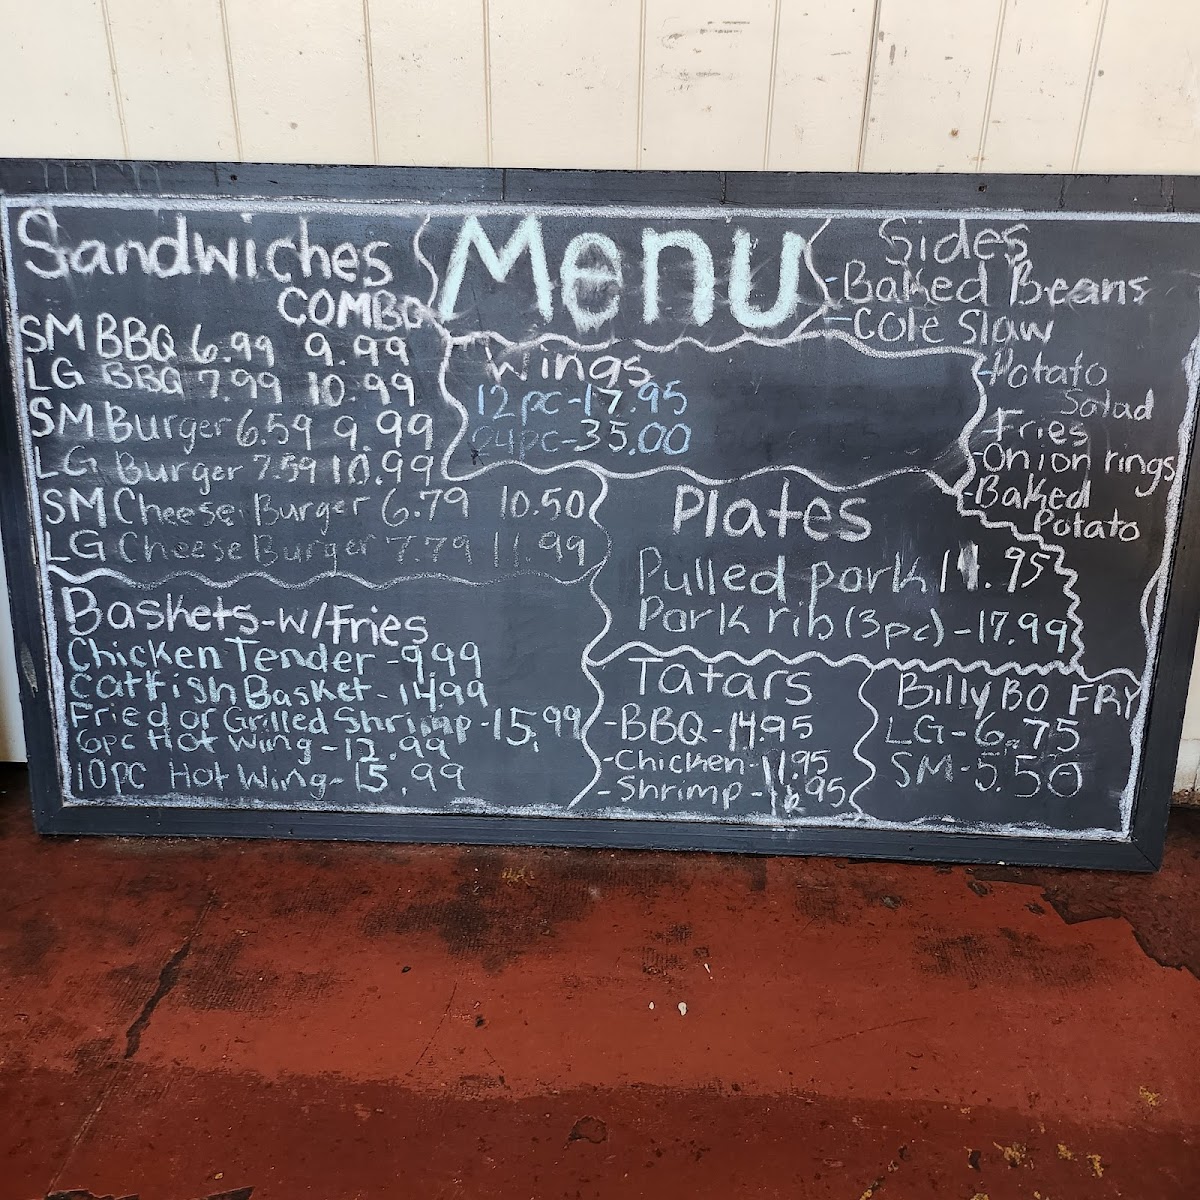 Menu
Sandwiches
COMBO
SM BBQ 6.99 9.99
LG BBQ 7.99 10.99
SM Burger 6.59 9.99
LG Burger 7.59 10.99
SM Cheese Burger 6.79 10.50
LG Cheese Burger 7.79 11.99
Baskets-w/Fries
Chicken Tender - 9.99
Catfish Basket - 14.99
Fried or Grilled Shrimp - 15.99
6pc Hot Wing - 12.99
10pc Hot Wing - 15.99
Wings
12pc - 17.95
24pc - 35.00
Plates
Pulled pork 11.95
Pork rib (3pc) - 17.99
Tatars
- BBQ - 14.95
- Chicken - 11.95
- Shrimp -
Sides
- Baked Beans
- Cole Slaw
- Potato
Salad
- Fries
- Onion rings
- Baked
Potato
Billy BO FRY
LG - 6.75
SM - 5.50